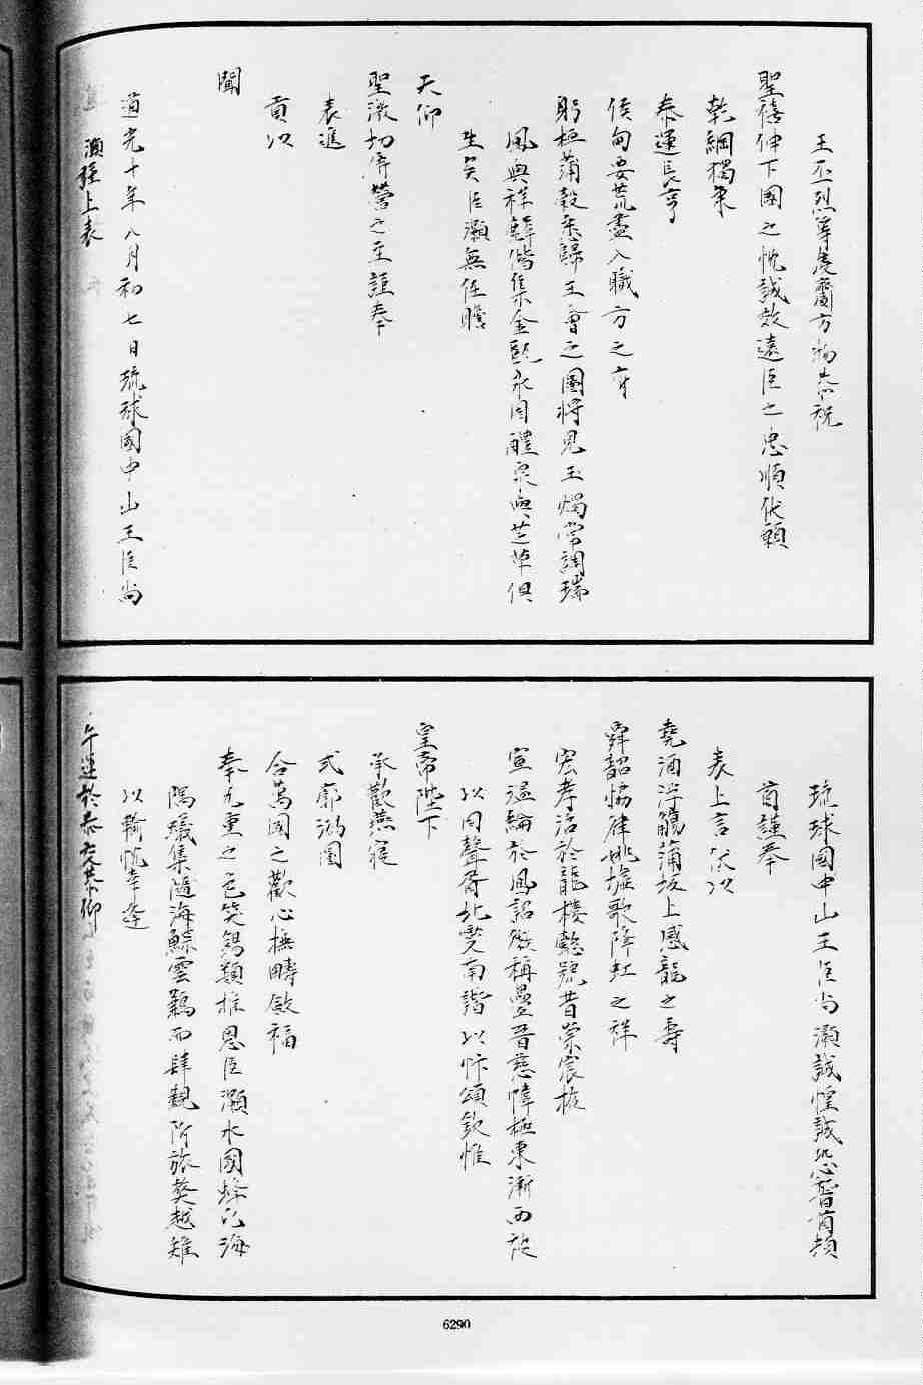 王丕烈等虔齎方物恭祝
聖禧伸下國之忱誠效遠臣之忠順伏願
乾綱獨秉
泰運長亨
侯甸要荒盡入職方之府
躬桓蒲穀來歸王會之圖將見玉燭常調瑞
鳳與祥麟偕集金甌永固醴泉與芝草俱
生矣臣灝無任瞻
天仰
聖激切屏營之至謹奉
表進
貢以
聞
道光十年八月初七日琉球國中山王臣尚
灝謹上表
琉球國中山王臣尚灝誠惶誠恐稽首頓
首謹奉
表上言伏以
堯酒浮觴蒲坂上感龍之壽
舜韶恊律姚墟歌降虹之祥
宏孝治於龍樓懿號昔崇宸極
宣溫綸於鳳詔徽稱疊晉慈幃極東漸西被
以同聲胥北燮南諧以忭頌欽惟
皇帝陛下
承歡燕寢
式廓鴻圖
合萬國之歡心撫疇斂福
奉九重之色笑錫類推恩臣灝水國蜂屯海
隅蟻集隨海鰈雲鶼而肆覲附旅獒越雉
以輸忱幸逢